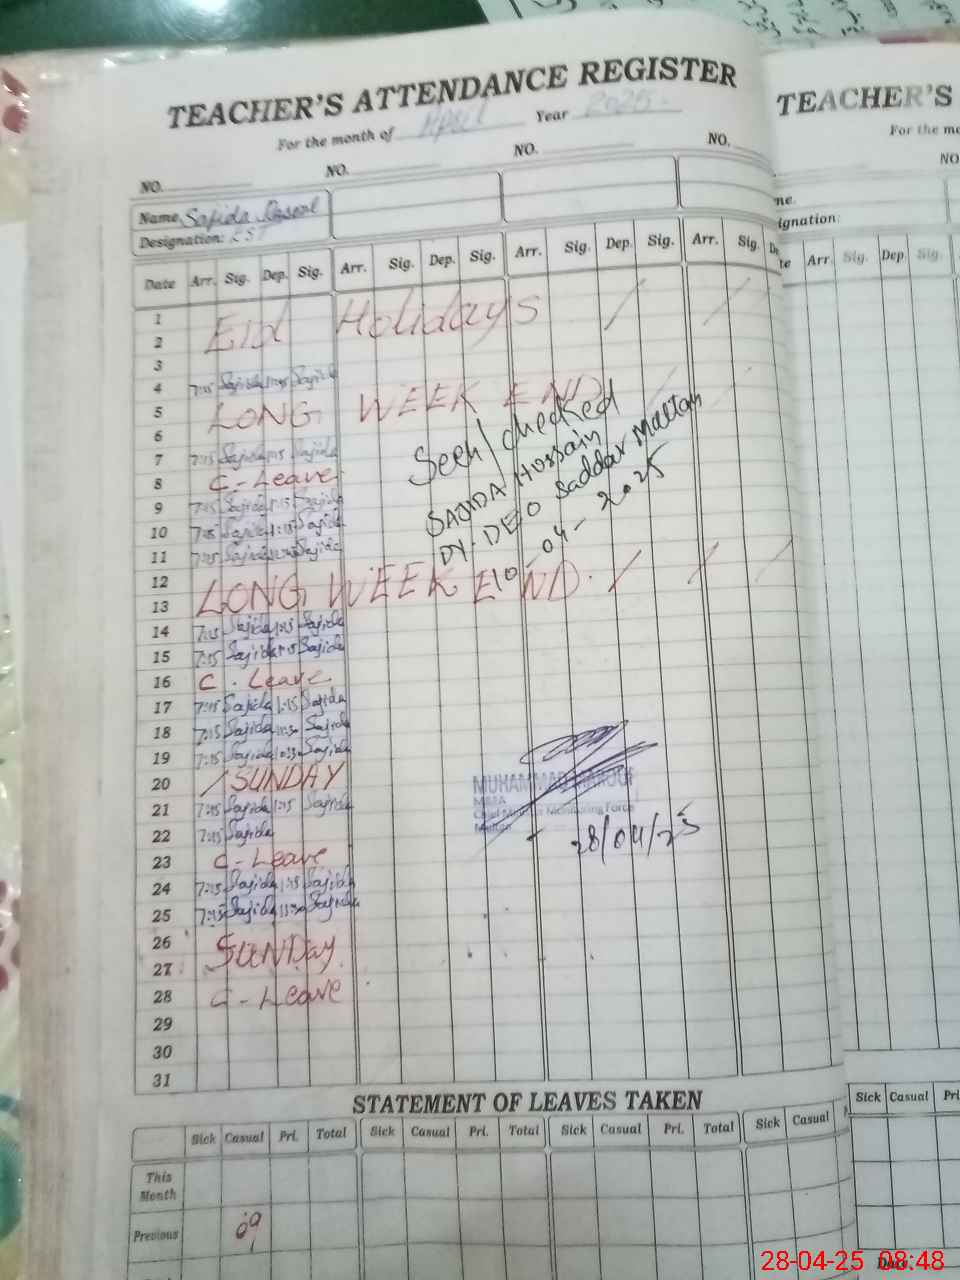 TEACHER'S ATTENDANCE REGISTER
For the month of April Year 2025
NO. NO. NO. NO.
Name Sajida
Designation: EST
Date Arr. Sig. Dep. Sig. Arr. Sig. Dep. Sig. Arr. Sig. Dep. Sig. Arr. Sig.
1
Eid Holidays
2
3
4 7:15 Sajida Sajida
5 LONG WEEK END
6
7 7:15 Sajida Sajida
8 C - Leave
9 7:15 Sajida 1:15 Sajida
10 7:15 Sajida 1:15 Sajida
11 7:15 Sajida Sajida
Seen/checked
SAJIDA Hossain
DY. DEO Saddar Multan
10-04-2025
12
LONG WEEK END.
13
14 7:15 Sajida 1:15 Sajida
15 7:15 Sajida 1:15 Sajida
16 C. Leave
17 7:15 Sajida 1:15 Sajida
18 7:15 Sajida Sajida
19 7:15 Sajida Sajida
20 SUNDAY
21 7:15 Sajida 1:15 Sajida
22 7:15 Sajida
MUHAMMAD MAROOF
Chief Minister Monitoring Force
Multan
28/04/25
23 C - Leave
24 7:15 Sajida 1:15 Sajida
25 7:15 Sajida Sajida
26
SUNDay
27
28 C - Leave
29
30
31
STATEMENT OF LEAVES TAKEN
Sick Casual Pri. Total Sick Casual Pri. Total Sick Casual Pri. Total Sick Casual
This Month
Previous 09
TEACHER'S
For the mo
NO
ne.
ignation:
te Arr Sig. Dep. Sig.
Sick Casual Pri
Date
28-04-25 08:48